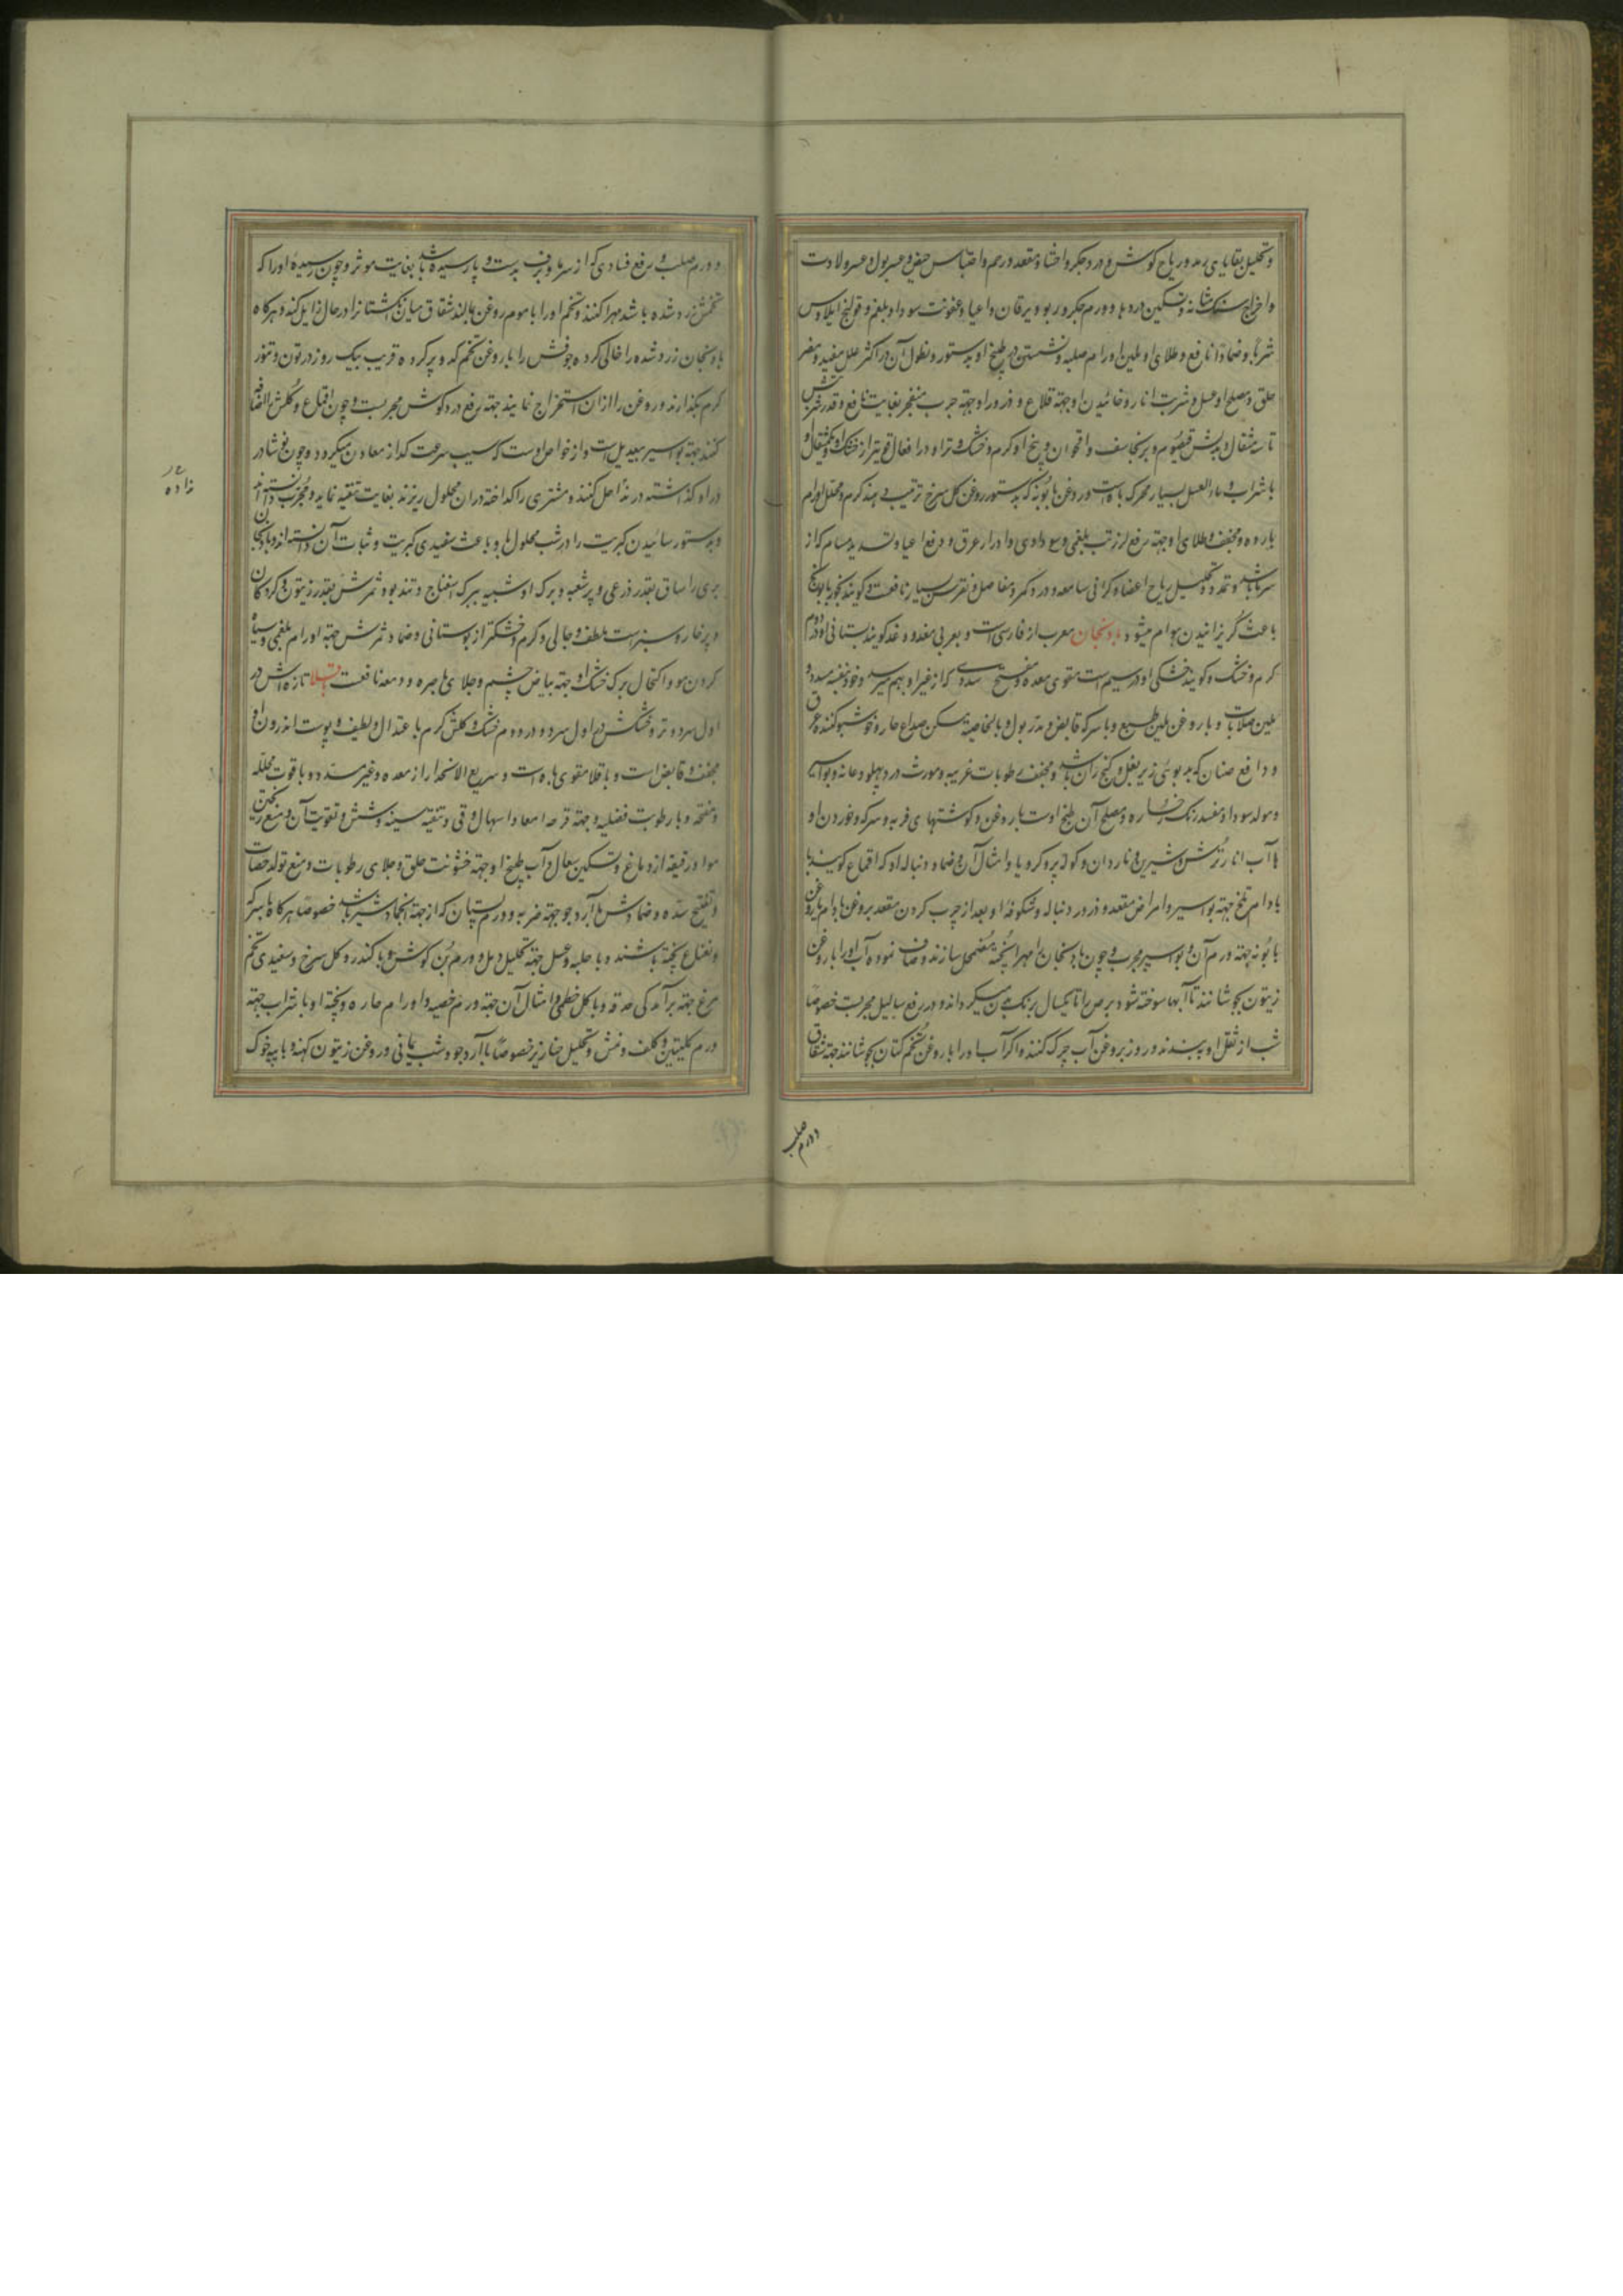 و تحلیل بقایای رمد و ریاح گوش و درد جگر و احشا و مقعد و رحم و احتباس حیض و عسر بول و عسر ولادت
و اخراج سنگ مثانه و تسکین دردها و ورم جگر و ربو و یرقان و اعیا و عفونت سودا و بلغم و قولنج ایلاوس
شرباً و ضماداً نافع و طلای او ملین اورام صلبه و نشستن در طبیخ او بدستور و نطول آن در اکثر علل مفید و مضر
حلق و مصلح او عسل و شربت انار و خائیدن او جهة قلاع و ذرور او جهة جرب متفجر بغایت نافع و قدر شربتش
تا سه مثقال و بدلش قیصوم و برنجاسف و اقحوان و بیخ او گرم و خشک و تر او در افعال قویتر از خشک او و یکمثقال او
با شراب و ماء العسل بسیار محرک باه است و روغن بابونه که بدستور روغن گل سرخ ترتیب دهند گرم و محلل اورام
بارده و مجفف و طلای او جهة رفع لرز تب بلغمی و سوداوی و ادرار عرق و دفع اعیا و تسدید مسام که از
سرما باشد و تمدد و تحلیل ریاح اعضا و گرانی سامعه و درد کمر و مفاصل و نقرس بسیار نافعست و گویند بخور بابونج
باعث گریزانیدن هوام میشود بادنجان معرب از فارسی است و بعربی مغد و وغد گویند بستانی او در دوم
گرم و خشک و گویند خشکی او در سیم است مقوی معده و مفتح سددی که از غیر او بهم رسد و خود بنفسه مسدد و
ملین صلابات و با روغن ملین طبع و با سرکه قابض و مدر بول و بالخاصیة مسکن صداع حار و خوشبو کننده عرق
و دافع صنان که بدبوئی زیر بغل و کنج ران باشد و مجفف رطوبات غریبه و مورث درد پهلو و عانه و بواسیر
و مولد سودا و مفسد رنگ رخساره و مصلح آن طبخ اوست با روغن و گوشتهای فربه و سرکه و خوردن او
با آب انار ترش و شیرین و ناردان و کرویا و امثال آن و ضماد دنباله او که اقماع گویند با
بادام تلخ جهة بواسیر و امراض مقعد و ذرور دنباله و شکوفه او بعد از چرب کردن مقعد بروغن بادام یا روغن
بابونه جهة ورم آن و بواسیر مجرب و چون بادنجان را مهرا پخته مضمحل سازند و صاف نموده آب او را با روغن
زیتون بجوشانند تا آبها سوخته شود برص را تا یکسال برنگ بدن میگرداند و در رفع ثآلیل مجربست خصوصاً
شب از ثقل او ببندند و روز بروغن آب چرک کنند و اگر آب او را با روغن تخم کتان بجوشانند جهة شقاق
و ورم صلب
و ورم صلب و رفع فسادی که از سرما و برف بدست و پا رسیده باشد بغایت موثر و چون رسیده او را که
تخمش زرد شده باشد مهرا کنند و تخم او را با موم روغن بمالند شقاق میان انگشتانرا در حال زایل کند و هرگاه
بادنجان زرد شده را خالی کرده جوفش را با روغن تخم کدو پر کرده قریب بیک روز در تون و تنور
گرم بگذارند و روغن را از آن استخراج نمایند جهة رفع درد گوش مجربست و چون اقماع و گلش را ضماد
کنند جهة بواسیر بیعدیل است و از خواص اوست که سبب سرعت گداز معادن میگردد و چون نوشادر
در او گذاشته در نداً حل کنند و مشتری را گداخته در آن محلول ریزند بغایت تنقیه نماید و مجرب دانسته اند
و بدستور سائیدن کبریت را در شب محلول با و باعث سفیدی کبریت و ثبات آن دانسته اند و بادنجان
بری را ساق بقدر ذرعی و پر شعبه و برگ او شبیه ببرگ اسفناج و تند بو و ثمرش بقدر زیتون و گردکان
و پر خار و سبزست ملطف و جالی و گرم و خشکتر از بوستانی و ضماد ثمرش جهة اورام بلغمی و سیاه
کردن مو و اکتحال برگ خشک او جهة بیاض چشم و جلای باصره و دمعه نافعست باقلا تازه اش در
اول سرد و تر و خشکش در اول سرد و در دوم خشک و گلش گرم باعتدال و لطیف و پوست اندرون او
مجفف و قابض است و باقلا مقوی باه است و سریع الانحدار از معده و غیر مسدد و با قوت محلله
و منضجه و با رطوبت فضلیه و جهة قرحه امعا و اسهال و قی و تنقیه سینه و شش و تقویت آن و منع ریختن
مواد رقیقه از دماغ و تسکین سعال و آب طبیخ او جهة خشونت حلق و جلای رطوبات و منع تولد حصات
و تفتیح سده و ضمادش با آرد جو جهة ضربه و ورم پستان که از جهة انجماد شیر باشد خصوصاً هرگاه با سرکه
و نعناع پخته باشند و با حلبه و عسل جهة تحلیل دمل و ورم بن گوش و با کندر و گل سرخ و سفیدی تخم
مرغ جهة برآمدگی حدقه و با گل خطمی و امثال آن جهة ورم خصیه و اورام حاره و پخته او با شراب جهة
درم کلیتین و کلف و نمش و تحلیل خنازیر خصوصاً با آرد جو و شب یمانی و روغن زیتون کهنه و با پیه خوک